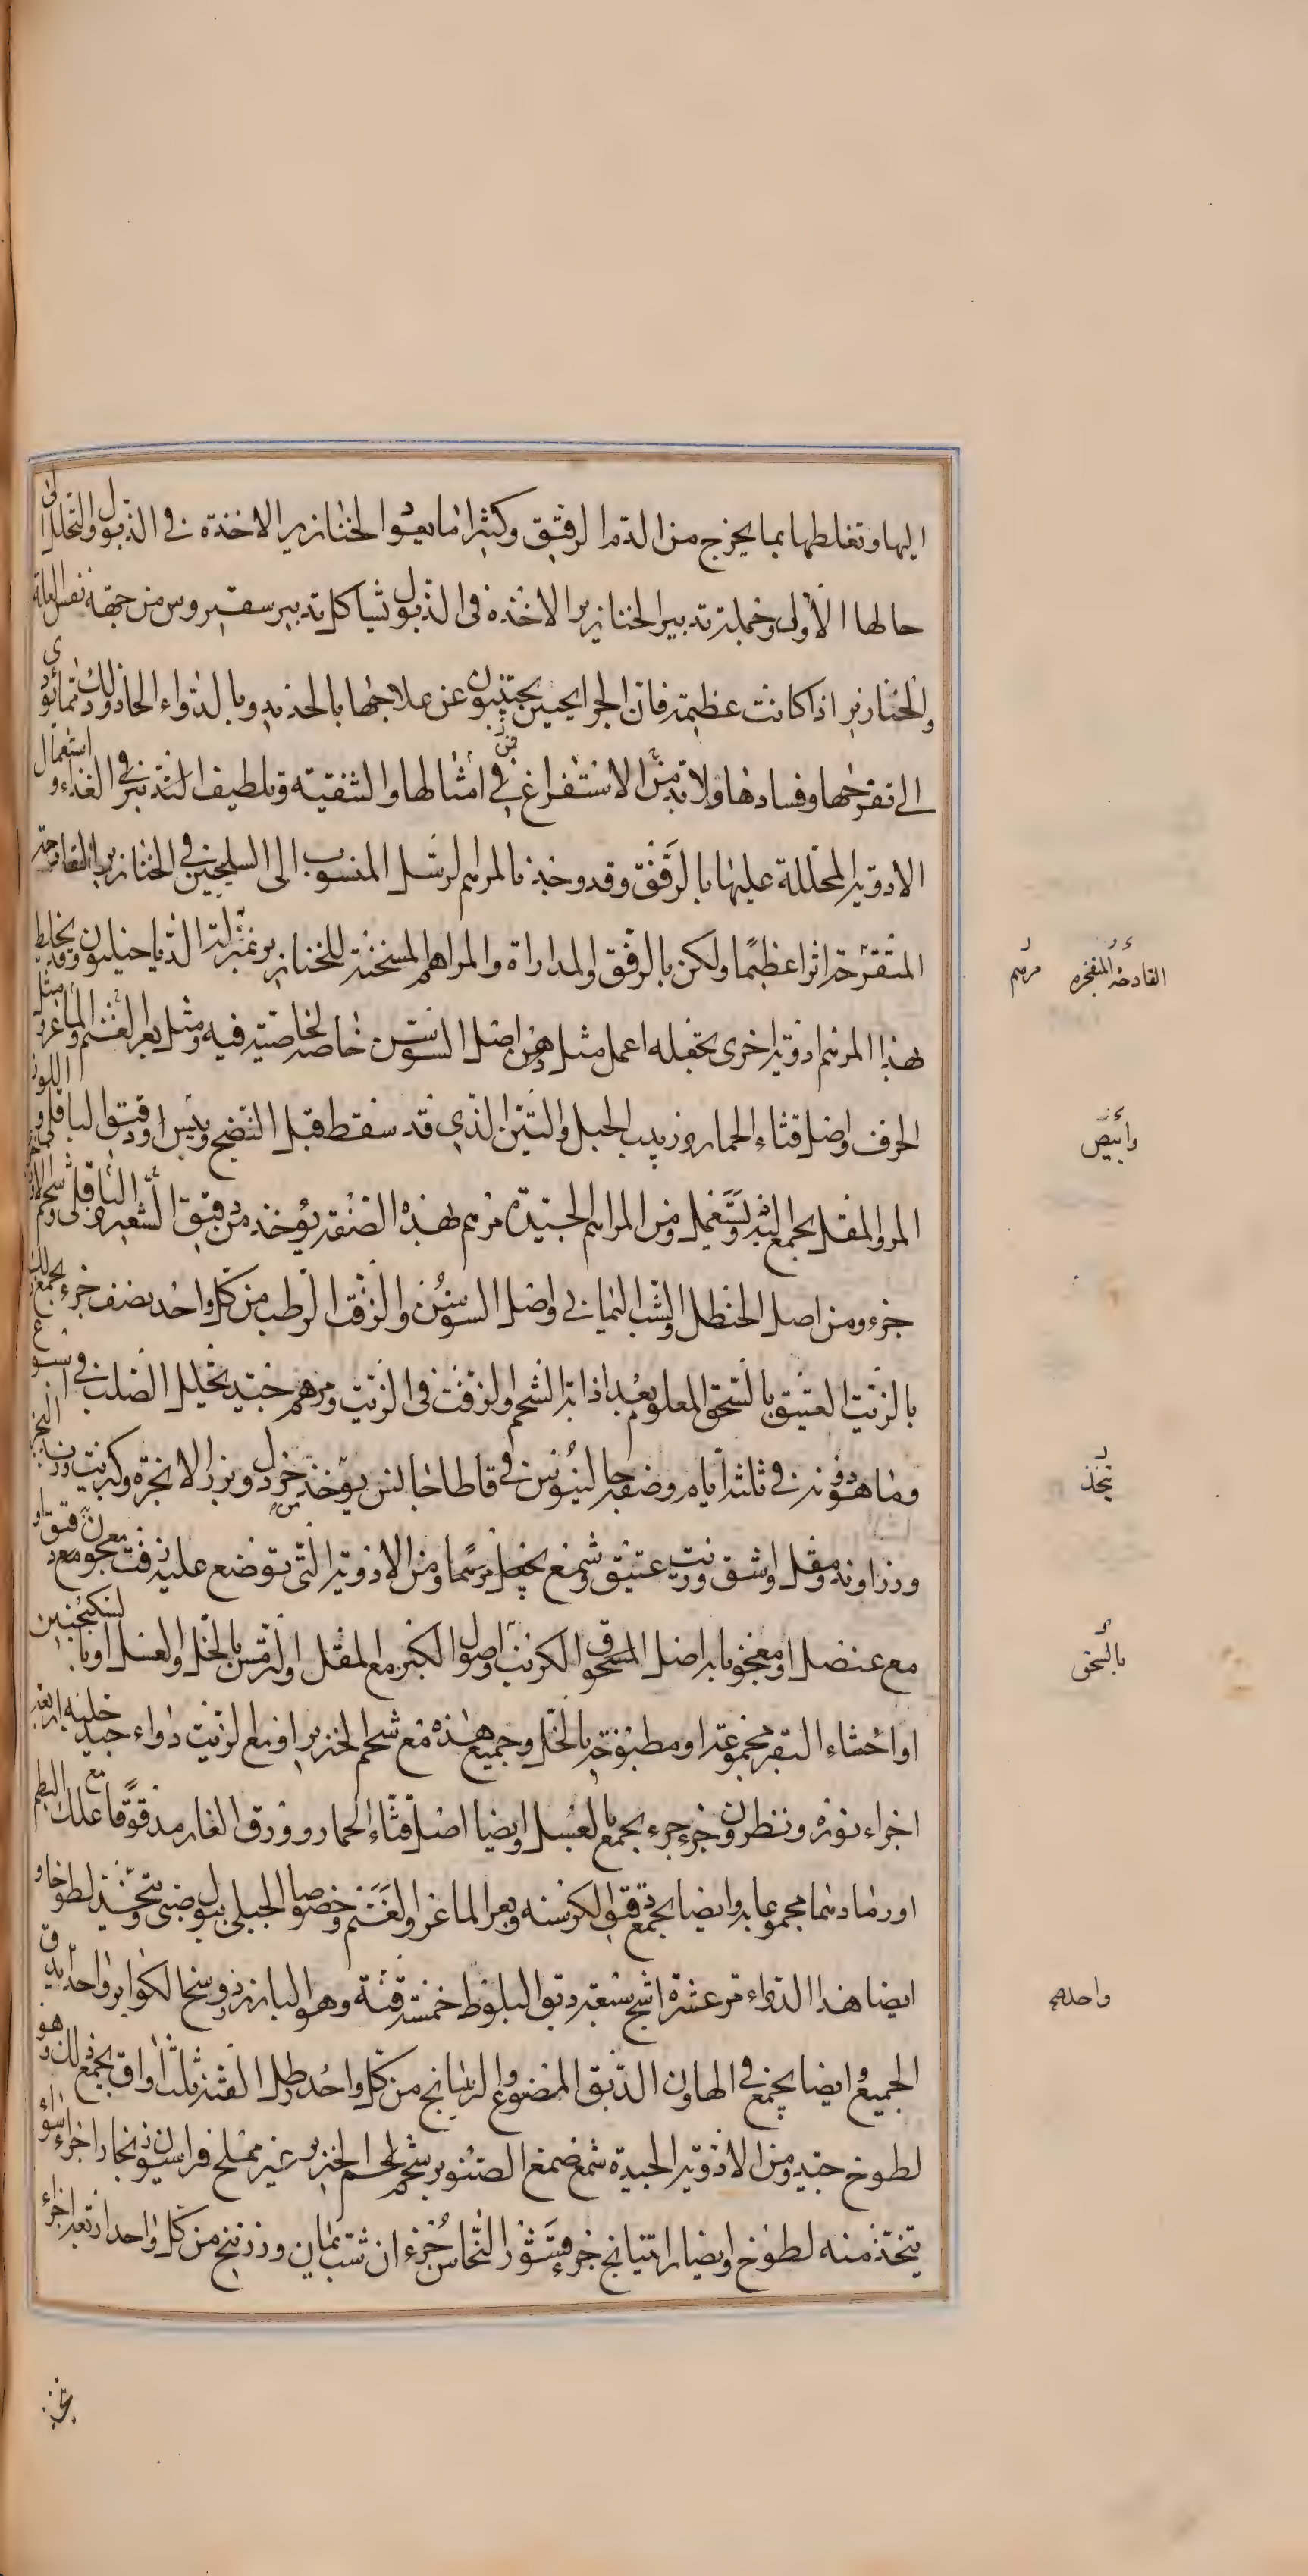 اليها وتغلظها بما يخرج من الدم الرقيق وكثيرا ما يعود الخنازير الاخذة في الذبول والتحلل الى
حالها الاولى وجملة تدبير الخنازير الاخذة في الذبول تشاكل تدبير سقيروس من جهة نفس العلة
والخنازير اذا كانت عظيمة فان الجرايحيين يجتنبون عن علاجها بالحديد وبالدواء الحاد وذلك مما يؤدي
الى تقرحها وفسادها ولا بد من الاستفراغ في امثالها والتنقية وتلطيف التدبير في الغذاء واستعمال
الادوية المحللة عليها بالرفق وقد وجد بالمرهم لرسل المنسوب الى السليحيين في الخنازير الفادحة
المتقرحة اثرا عظيما ولكن بالرفق والمداراة والمراهم المسخنة للخنازير بمنزلة الدياخيلون وقد يخلط
بهذا المرهم ادوية اخرى تجعله اعمل مثل دهن اصل السوسن خاصة لخاصية فيه ومثل بعر الغنم والماعز ومثل
الحرف واصل قثاء الحمار وزبيب الجبل والتين الذي قد سقط قبل النضج ويبس او دقيق الباقلى واللوز
المر والمقل يجمع اليه ويستعمل ومن المراهم الجيدة مرهم بهذه الصفة يؤخذ من دقيق الشعير والباقلى وشحم
جزء ومن اصل الحنظل والشب اليماني واصل السوسن والزفت الرطب من كل واحد نصف جزء يجمع ذلك
بالزيت العتيق بالسحق المعلوم بعد اذابة الشحم والزفت في الزيت ومرهم جيد يحلل الصلب في اسبوع
وما هو دونه في ثلثة ايام وصفه جالينوس في قاطاجانس يؤخذ خردل وبزر الانجرة وكبريت وزبد البحر
وزراوند ومقل واشق وزيت عتيق وشمع يتخذ مرهما ومن الادوية التي توضع عليه زفت معجون مع دقيق او
مع عنصل او معجونا به اصل المسحوق الكرنب واصول الكبر مع المقل او ترمس بالخل والعسل او بالسكنجبين
او اخثاء البقر مجموعة او مطبوخة بالخل وجميع هذه مع شحم الخنزير او مع الزيت دواء جيد حلبة اربعة
اجزاء نورة ونطرون جزء جزء يجمع بالعسل وايضا اصل قثاء الحمار وورق الغار مدقوقا مع علك البطم
او رمادهما مجموعا به وايضا يجمع دقيق الكرسنة وبعر الماعز والغنم وخصوصا الجبلي ببول صبي ويتخذ لطوخا و
ايضا هذا الدواء مر عشرة اشج سبعة دبق البلوط خمسة قنة وهو البارزد ووسخ الكواير واحد يدق
الجميع وايضا يجمع في الهاون الدبق الممضوغ والرتيانج من كل واحد رطل القنة ثلث اواق يجمع ذلك وهو
لطوخ جيد ومن الادوية الجيدة شمع صمغ الصنوبر شحم لحم الخنزير غير مملح فراسيون زنجار اجزاء سواء
يتخذ منه لطوخ وايضا راتيانج جزء قشور النحاس جزءان شب يمان وزرنيخ من كل واحد اربعة اجزاء
القادحة المتفجرة مرهم
وابيض
يتخذ
بالسحق
واحدهم